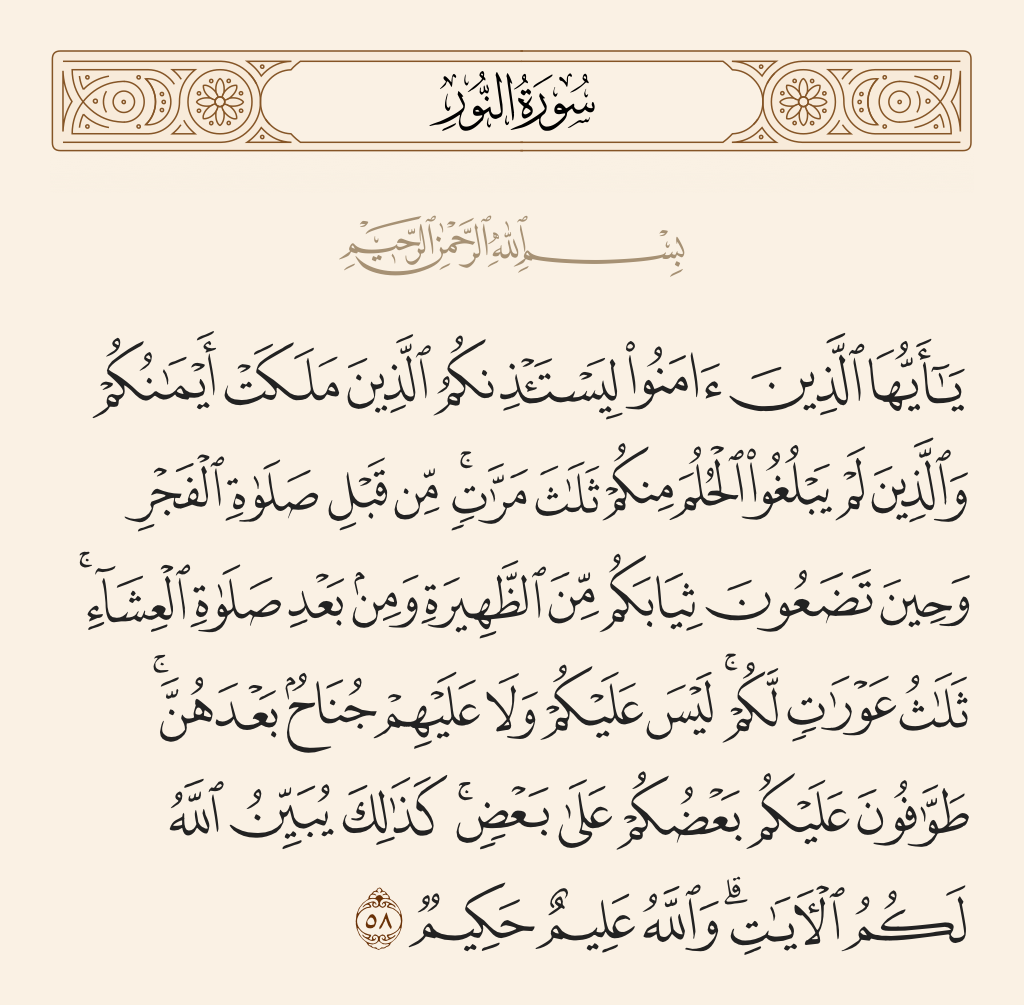 سُورَةُ النُّورِ
بِسْمِ ٱللَّهِ ٱلرَّحْمَٰنِ ٱلرَّحِيمِ
يَٰٓأَيُّهَا ٱلَّذِينَ ءَامَنُوا۟ لِيَسْتَـْٔذِنكُمُ ٱلَّذِينَ مَلَكَتْ أَيْمَٰنُكُمْ
وَٱلَّذِينَ لَمْ يَبْلُغُوا۟ ٱلْحُلُمَ مِنكُمْ ثَلَٰثَ مَرَّٰتٍ ۚ مِّن قَبْلِ صَلَوٰةِ ٱلْفَجْرِ
وَحِينَ تَضَعُونَ ثِيَابَكُم مِّنَ ٱلظَّهِيرَةِ وَمِنۢ بَعْدِ صَلَوٰةِ ٱلْعِشَآءِ ۚ
ثَلَٰثُ عَوْرَٰتٍ لَّكُمْ ۚ لَيْسَ عَلَيْكُمْ وَلَا عَلَيْهِمْ جُنَاحٌۢ بَعْدَهُنَّ ۚ
طَوَّٰفُونَ عَلَيْكُم بَعْضُكُمْ عَلَىٰ بَعْضٍ ۚ كَذَٰلِكَ يُبَيِّنُ ٱللَّهُ
لَكُمُ ٱلْـَٔايَٰتِ ۗ وَٱللَّهُ عَلِيمٌ حَكِيمٌ ٥٨